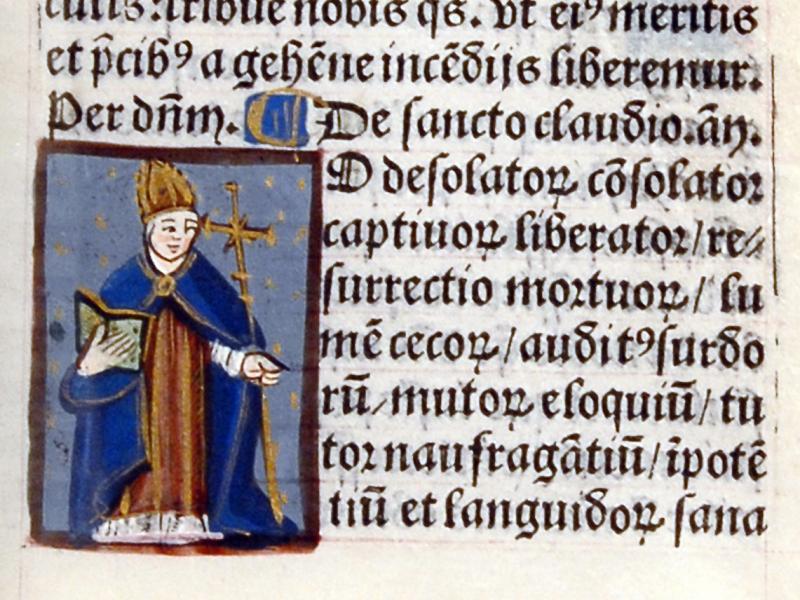 culis: Tribue nobis qs. vt eiꝰ meritis
et p̄cibꝰ a gehēne incēdijs liberemur.
Per dn̄m. De sancto claudio. an̄.
O desolatoꝝ cōsolator
captiuoꝝ liberator/ re⸗
surrectio mortuoꝝ/ lu
mē cecoꝝ/ auditꝰ surdo
rū/ mutoꝝ eloquiū/ tu
tor naufragātiū/ īpotē
tiū et languidoꝝ sana